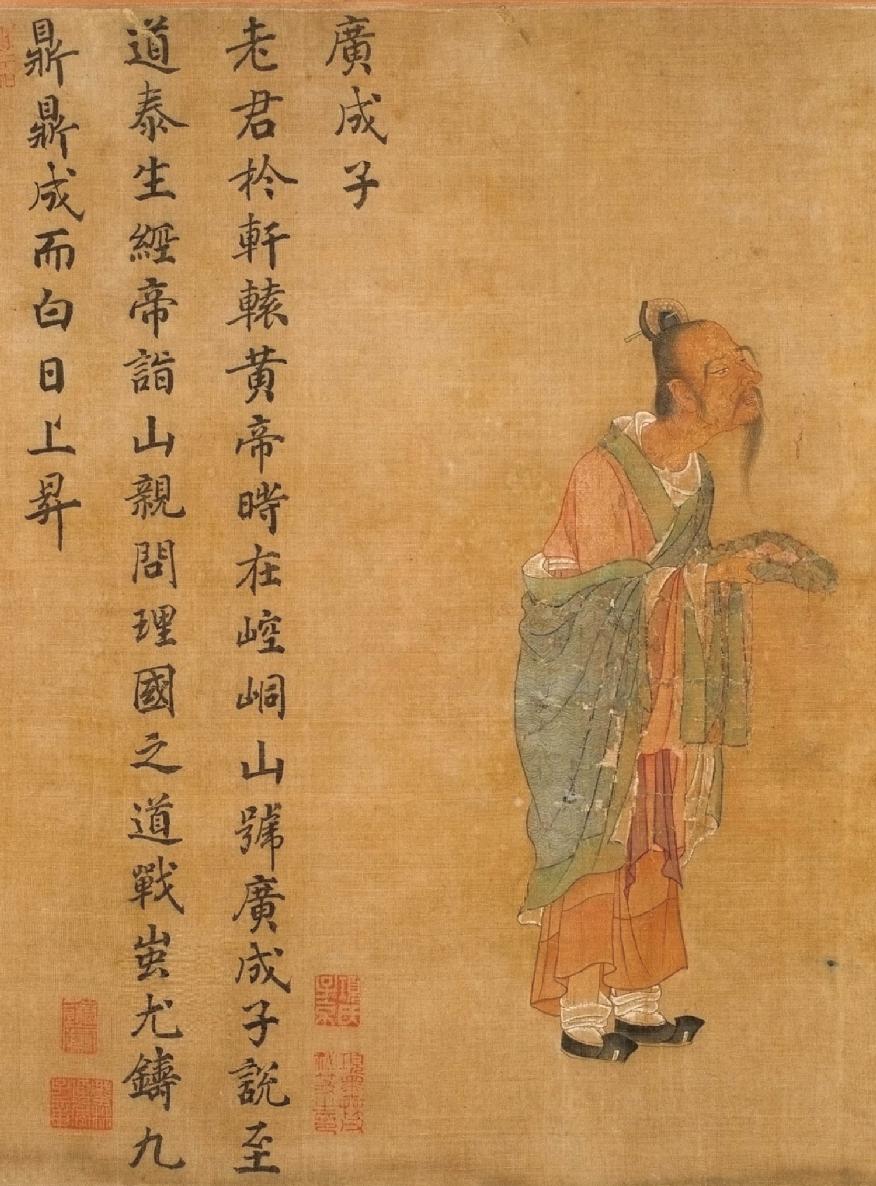 廣成子
老君扵軒轅黄帝時在崆峒山號廣成子說至
道泰生經帝詣山親問理國之道戰蚩尤鑄九
鼎鼎成而白日上昇